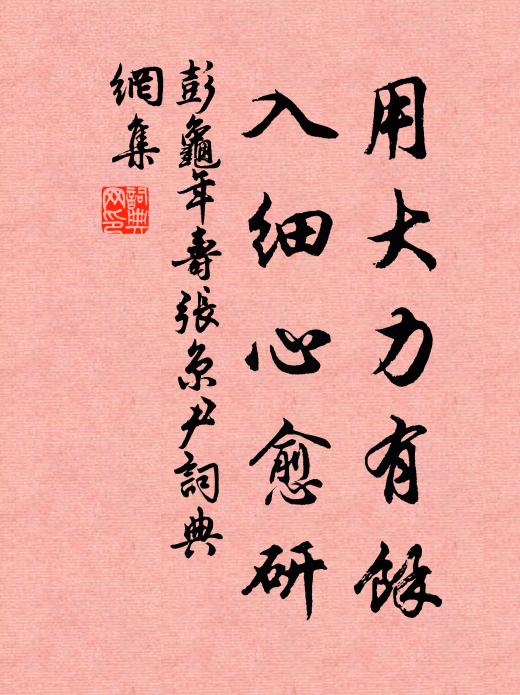 用大力有餘
入細心愈研
彭龜年壽張京尹詞典
網集
詞典
网印